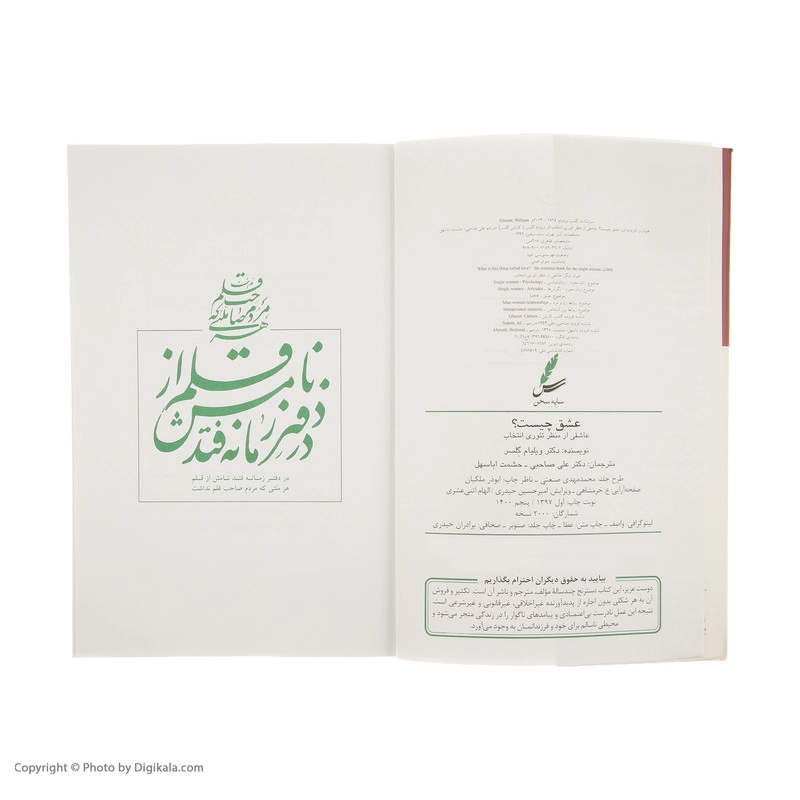 سرشناسه: گلسر، ویلیام، ۱۹۲۵ - ۲۰۱۳م. Glasser, William
"What is this thing called love? : the essential book for the single woman, c2000.
Single women - Psychology
Single women - Attitudes
Love
Man-woman relationships
Interpersonal relations
Glasser, Carleen
Sahebi, Ali
سایه سخن
عشق چیست؟
عاشقی از منظر تئوری انتخاب
نویسنده: دکتر ویلیام گلسر
مترجمان: دکتر علی صاحبی ـ حشمت اباسهل
طرح جلد: محمدمهدی صنعتی ـ ناظر چاپ: ابوذر ملکیان
صفحه‌آرایی ع خرمشاهی ـ ویرایش: امیرحسین حیدری / الهام اثنی‌عشری
نوبت چاپ: اول ۱۳۹۷ / پنجم ۱۴۰۰
شمارگان: ۲۰۰۰ نسخه
لیتوگرافی: واصف ـ چاپ متن: عطا ـ چاپ جلد: صنوبر ـ صحافی: برادران حیدری
بیایید به حقوق دیگران احترام بگذاریم
دوست عزیز، این کتاب دسترنج چندسالهٔ مؤلف، مترجم و ناشر آن است. تکثیر و فروش
آن به هر شکلی بدون اجازه از پدیدآورنده غیراخلاقی، غیرقانونی و غیرشرعی است.
نتیجه این عمل نادرست بی‌اعتمادی و پیامدهای ناگوار را در زندگی منجر می‌شود و
محیطی ناسالم برای خود و فرزندانمان به وجود می‌آورد.
در دفتر زمانه فتد نامش از قلم
هر ملتی که مردم صاحب قلم نداشت
در دفتر زمانه فتد نامش از قلم
هر ملتی که مردم صاحب قلم نداشت
Copyright © Photo by Digikala.com